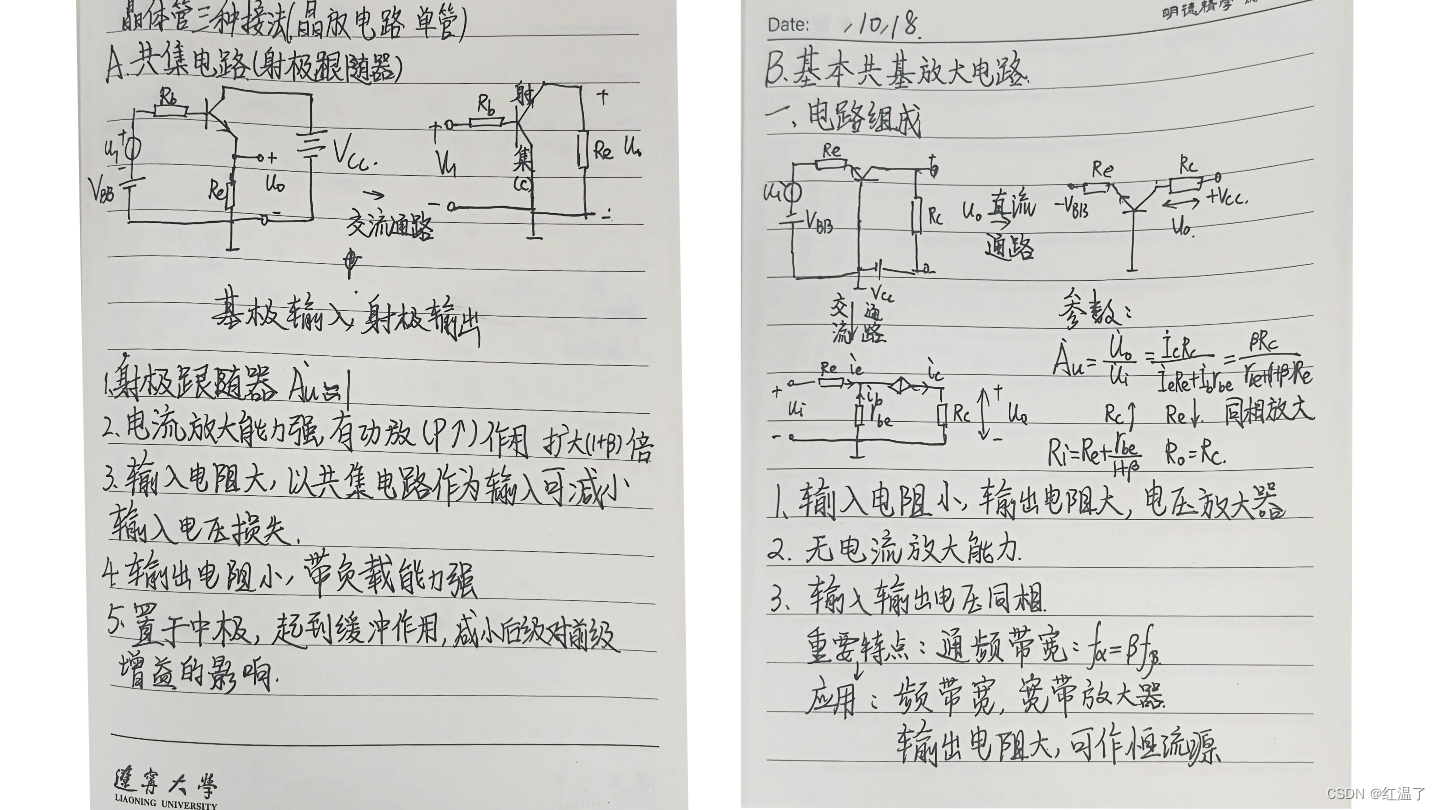 晶体管三种接法(晶放电路 单管)
A.共集电路(射极跟随器)
Rb
U1
+
VBB
Re
+
Uo
-
VCC.
→
交流通路
+
U1
-
Rb
射
集
(c)
Re
+
Uo
-
基极输入,射极输出
1.射极跟随器 Ȧu≈1
2.电流放大能力强,有功放(P↑)作用 扩大(1+β)倍
3.输入电阻大,以共集电路作为输入可减小
输入电压损失.
4.输出电阻小,带负载能力强
5.置于中极,起到缓冲作用,减小后级对前级
增益的影响.
遼寧大學
LIAONING UNIVERSITY
Date: ,10,18.
B.基本共基放大电路.
一、电路组成
Re
Ui
VBB
Rc
Vcc
Uo 直流
→
通路
Re
-VBB
Rc
+Vcc.
Uo.
交流通路
Re
ie
ic
ib
rbe
+
Ui
-
Rc
+
Uo
-
参数:
Ȧu=U̇o/U̇i=İcRc/(İeRe+İbrbe)=βRc/(rbe+(1+β)Re
Rc↑ Re↓. 同相放大
Ri=Re+rbe/(1+β) Ro=Rc.
1、输入电阻小,输出电阻大,电压放大器
2. 无电流放大能力.
3、输入输出电压同相.
重要特点:通频带宽:fα=βfβ.
应用:频带宽,宽带放大器.
输出电阻大,可作恒流源
CSDN @红温了